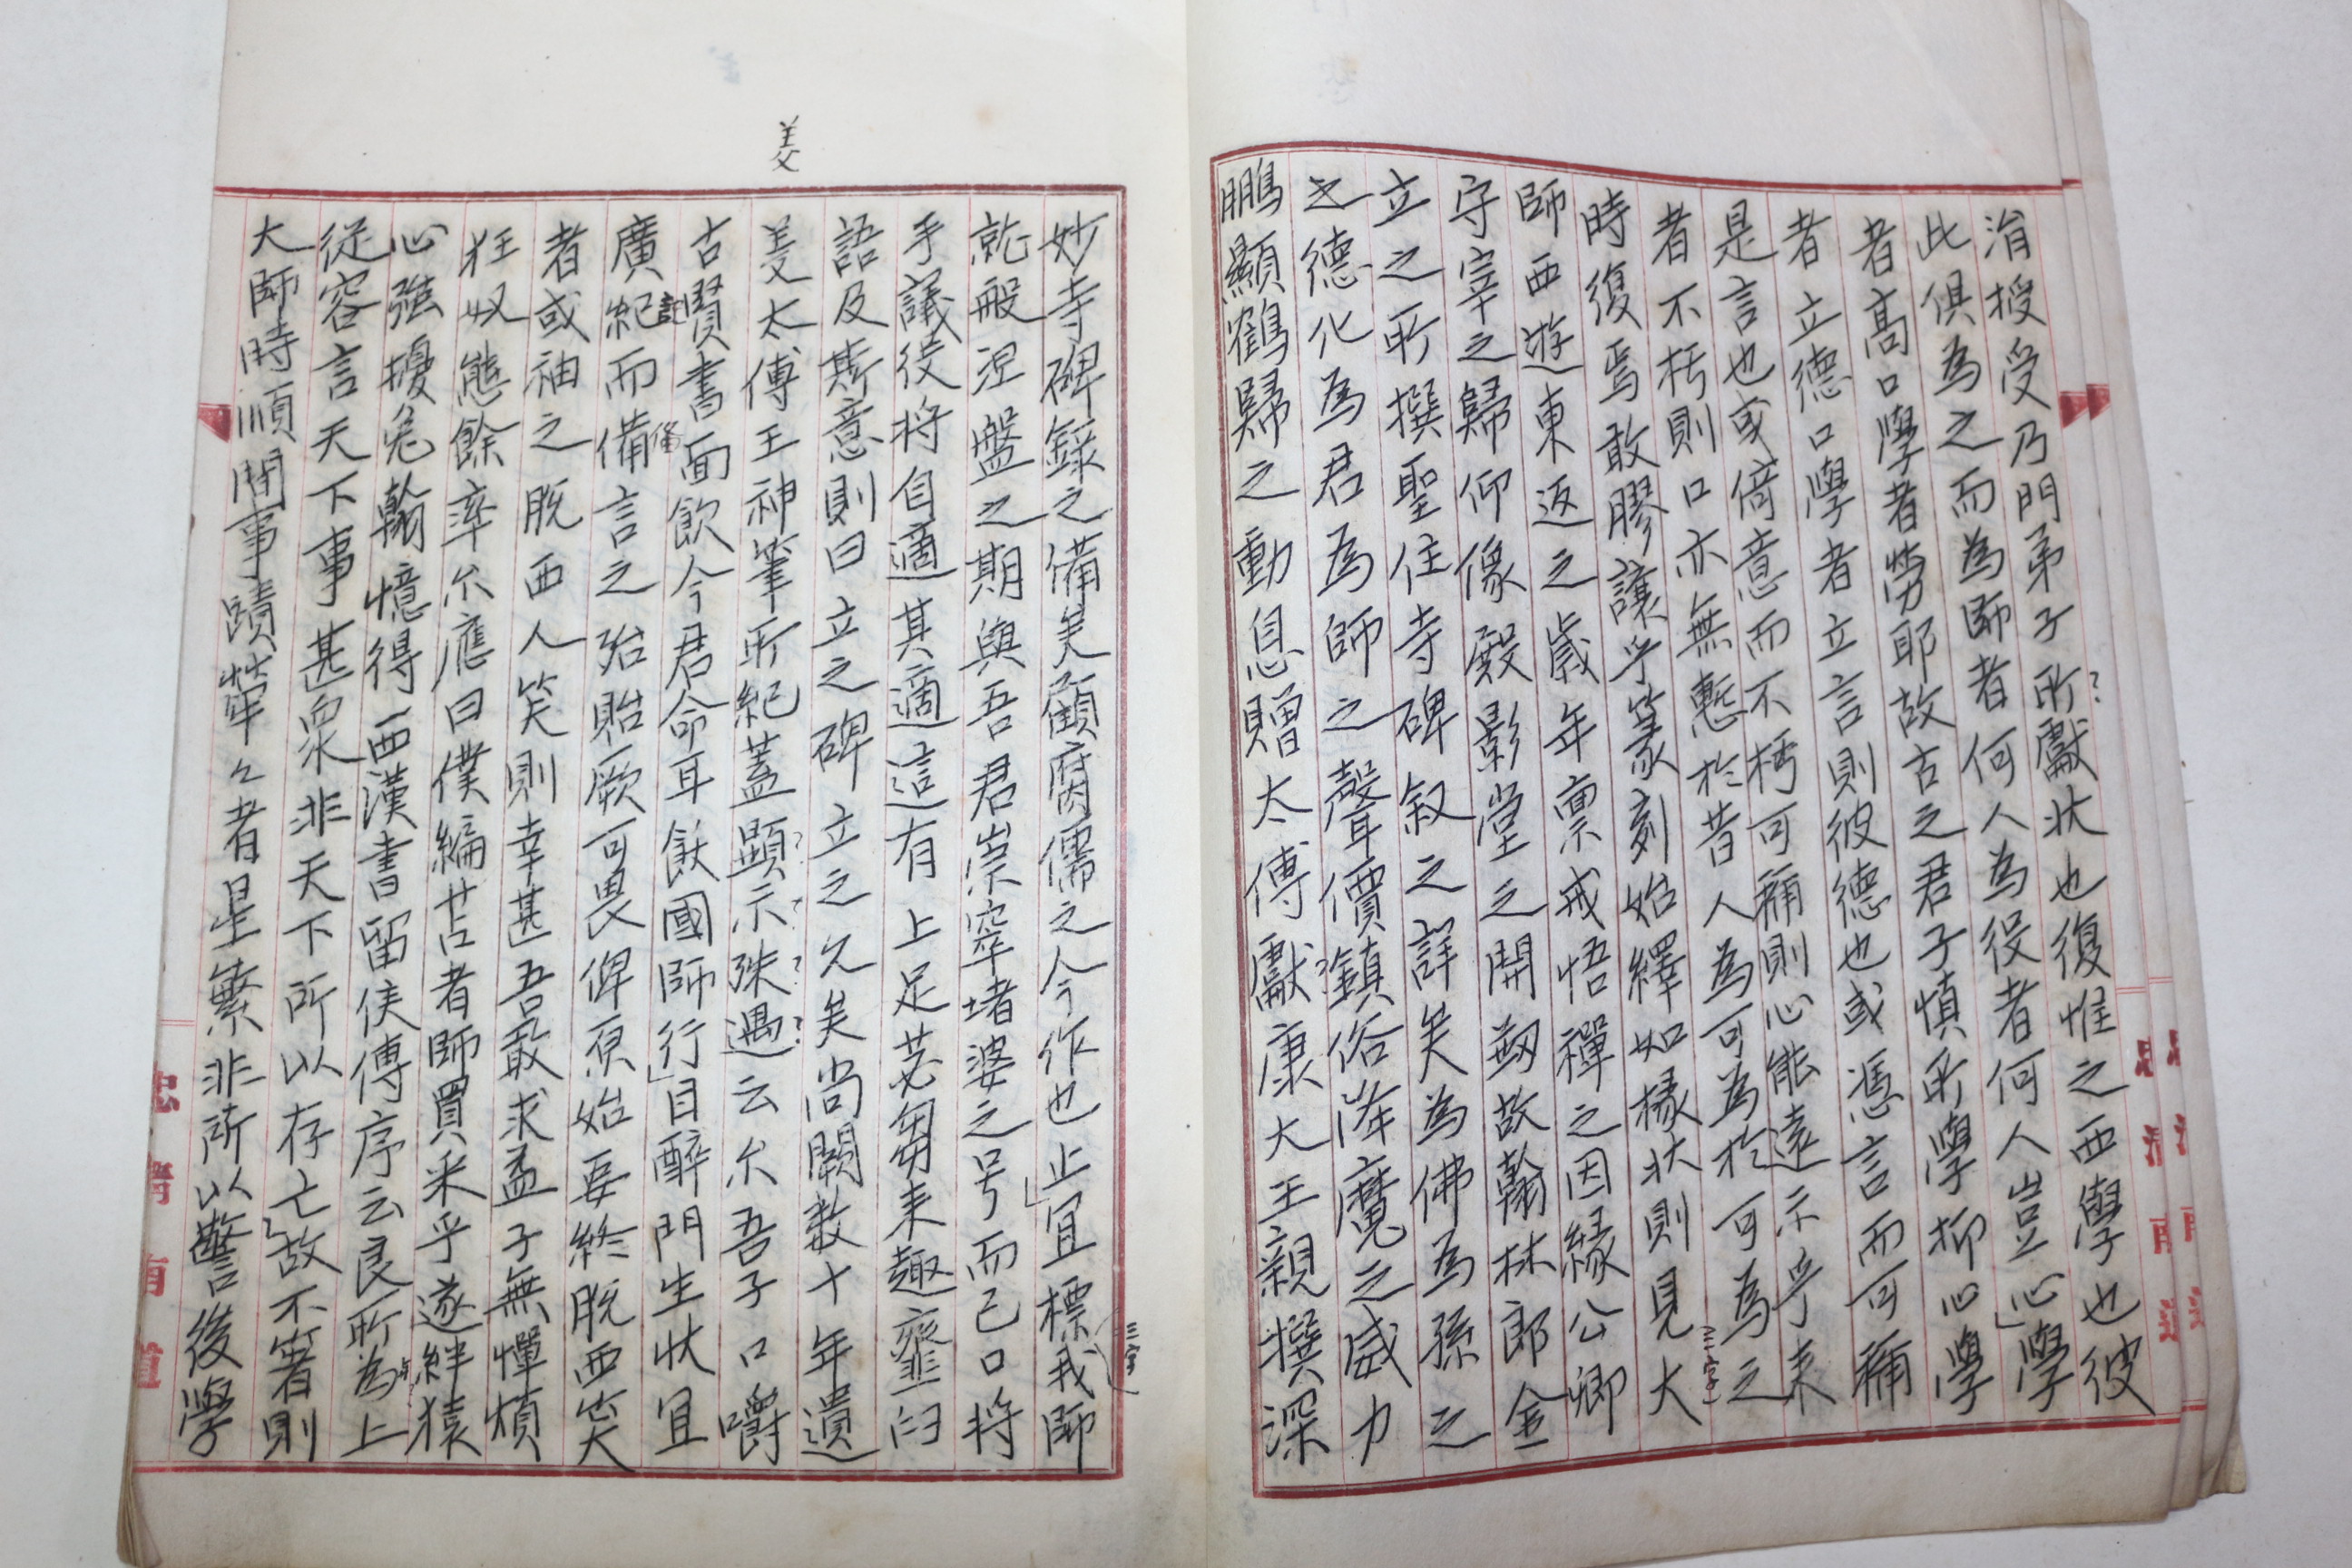 消授受乃門弟子所獻状也復惟之西學也彼
此俱為之而為師者何人為役者何人豈心學
者高口學者勞耶故古之君子慎所學抑心學
者立德口學者立言則彼德也或馮言而可稱
是言也或倚意而不朽可稱則心能遠示乎来
者不朽則口亦無慙於昔人為可為於可為之
時復焉敢膠讓乎篆刻始繹如椽状則見大
師西遊東返之歲年稟戒悟禪之因緣公卿
守宰之歸仰像殿影堂之開剏故翰林郎金
立之所撰聖住寺碑叙之詳矣為佛為孫之
之德化為君為師之聲價鎮俗降魔之威力
鵬顯鶴歸之動息贈太傅獻康大王親撰深
三字
妙寺碑錄之備矣顧腐儒之今作也止宜標我師
就般涅盤之期與吾君崇窣堵婆之号而已口将
手議役将自適其適這有上足苾蒭来趣虀臼
語及斯意則曰立之碑立之久矣尚闕数十年遺
美太傅王神筆所紀蓋顕示殊遇云尒吾子口嚼
古賢書面飲今君命耳飫國師行目醉門生状宜
廣紀而備言之殆貽厥可畏俾原始要終脫西笑
者或袖之脫西人笑則幸甚吾敢求盂子無憚煩
狂奴態餘率尒應曰僕編苫者師買采乎遂絆猿
心強擾兔翰憶得西漢書留侯傳序云良所為上
従容言天下事甚衆非天下所以存亡故不著則
大師時順間事蹟犖々者星繁非所以警後學
美
記
備
三字